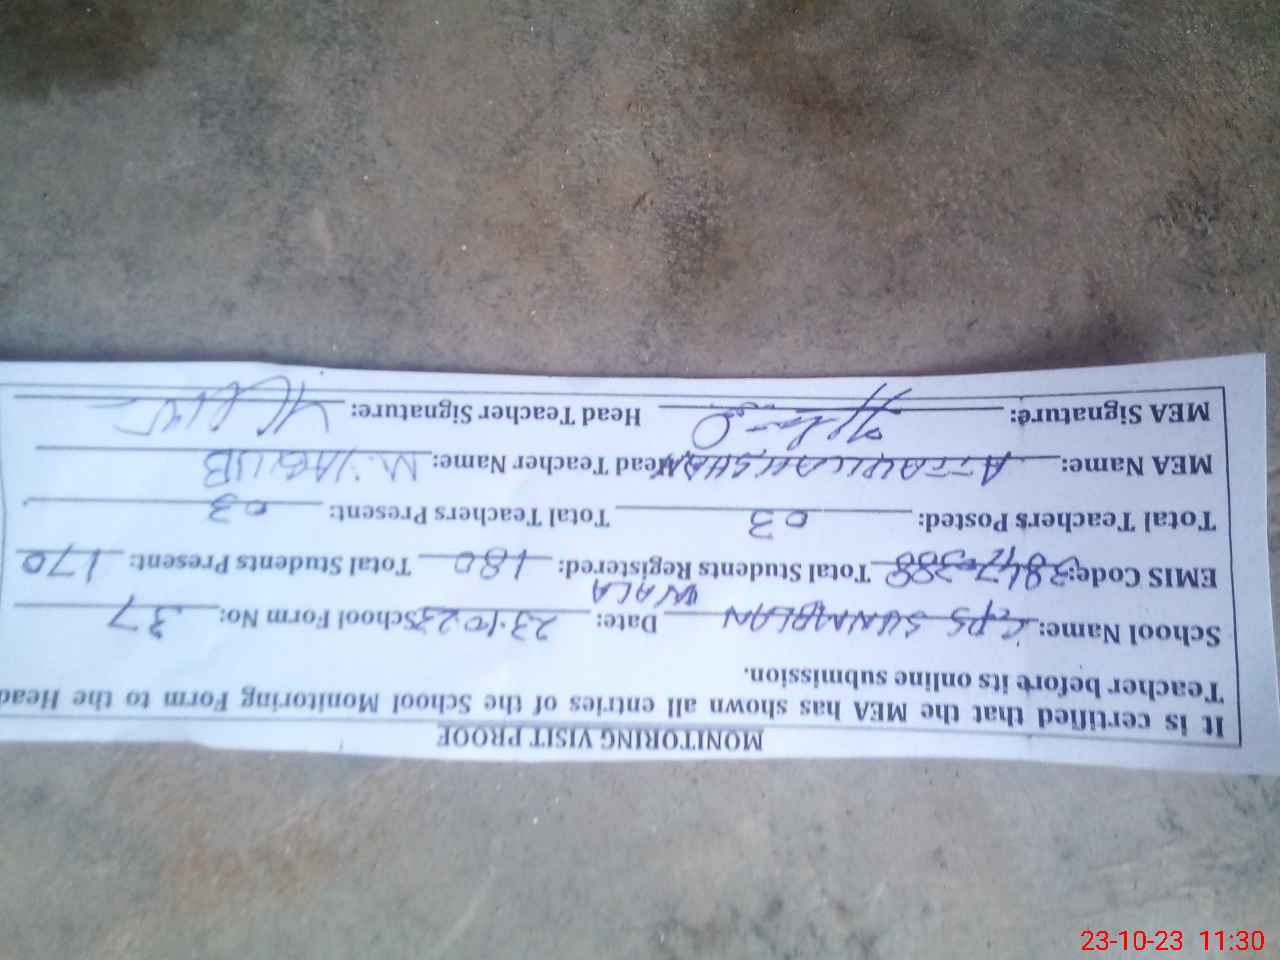 MONITORING VISIT PROOF
It is certified that the MEA has shown all entries of the School Monitoring Form to the Head
Teacher before its online submission.
School Name: GPS SUNARLAN WALA Date: 23.10.23 School Form No: 37
EMIS Code: Total Students Registered: 180 Total Students Present: 170
Total Teachers Posted: 03 Total Teachers Present: 03
MEA Name: ATTAULLAH SHAH Head Teacher Name: M. YAQUB
MEA Signature: Head Teacher Signature:
23-10-23 11:30